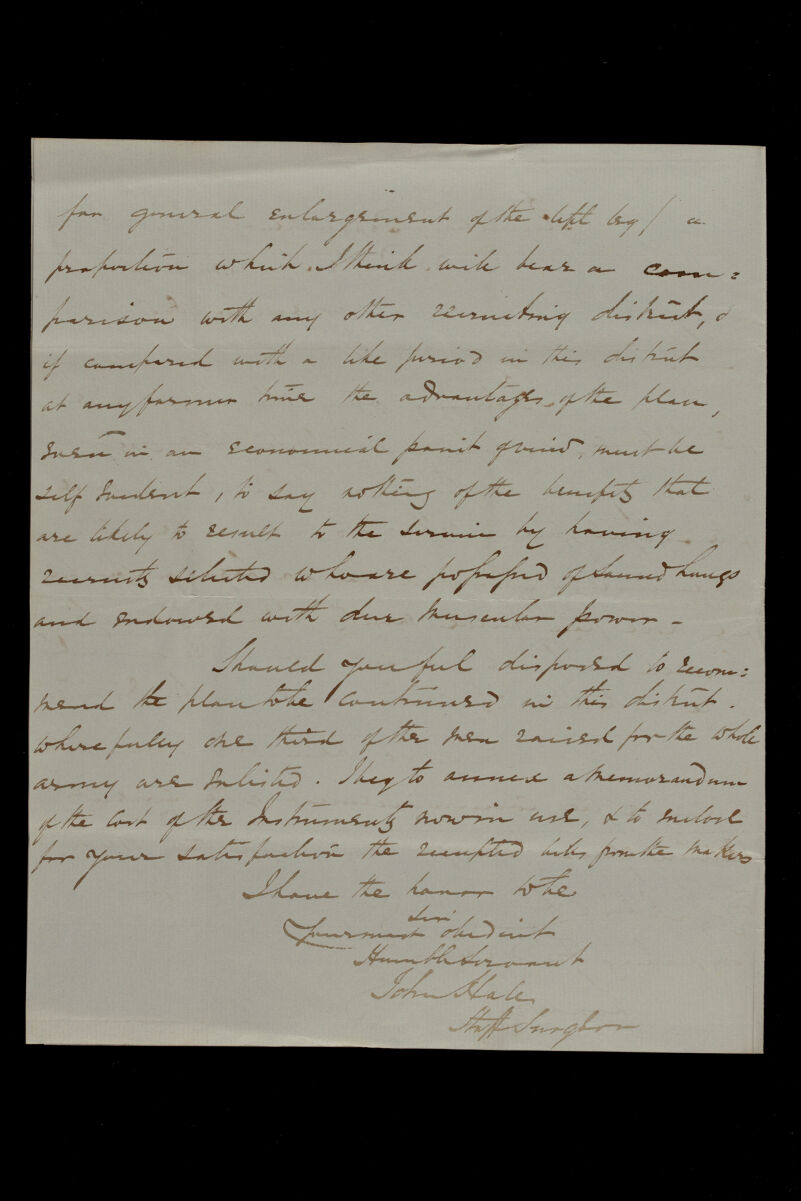 for general enlargement of the left leg / a
proportion which I think will bear a com=
parison with any other recruiting district, &
if compared with a like period in this district
at any former time the advantages of the plan,
even in an economical point of view, must be
self evident, to say nothing of the benefits that
are likely to result to the service by having
recruits selected who are possessed of sound lungs
and endowed with due muscular power -
Should you feel disposed to recom=
mend the plan to be continued in this district.
where fully one third of the men raised for the whole
army are enlisted. I beg to annex a memorandum
of the cost of the Instruments now in use, & to enclose
for your satisfaction the receipted bills from the makers
I have the honor to be
Sir
Your most obedient
Humble Servant
John Hale
Staff Surgeon